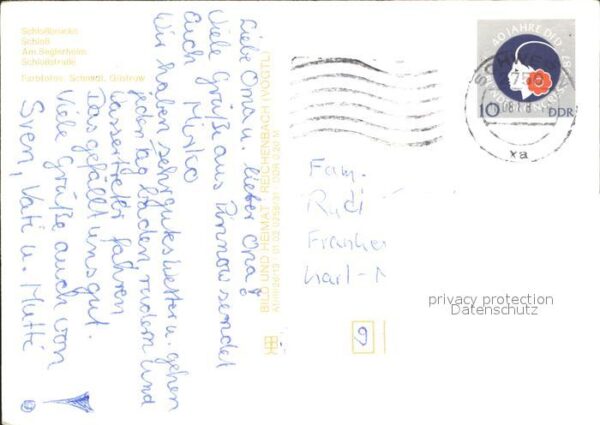 Schloßbrücke
Schloß
Am Seglerheim
Schloßstraße
Farbfotos: Schmidt, Güstrow
Liebe Oma u. lieber Opa!
Viele Grüße aus Pinnow sendet
Euch Mirko
Wir haben sehr gutes Wetter u. gehen
jeden Tag baden rudern und
Wassertreter fahren
Das gefällt uns gut.
Viele Grüße auch von
Sven, Vati u. Mutti
BILD UND HEIMAT REICHENBACH (VOGTL)
40 JAHRE DFD
10 DDR
Fam.
Rudi
Franke
Karl-M
6
privacy protection
Datenschutz